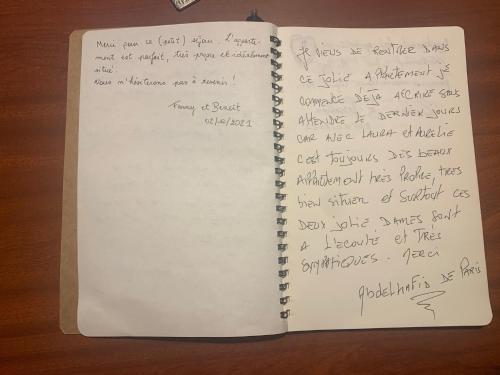 Merci pour ce (petit) séjour. L'apparte-
ment est parfait, très propre et idéalement
situé.
Nous n'hésiterons pas à revenir !
Fanny et Benoit
02/10/2021
Je viens de rentrer dans
ce jolie appartement je
commence déjà a écrire sans
attendre le dernier jours
car avec Laura et Aurélie
c'est toujours des beaux
Appartement très propre, très
bien situer et surtout ces
deux jolie dames sont
a l'écoute et très
sympatiques. Merci
Abdelhafid de Paris